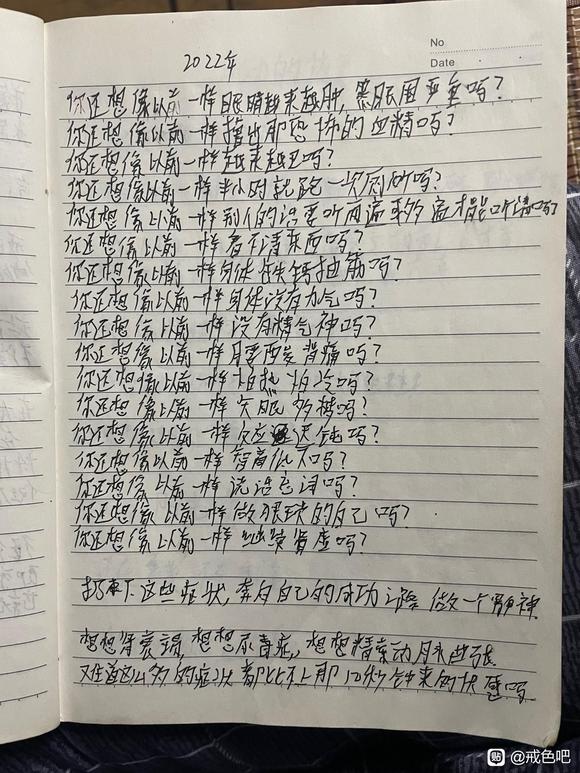 No
Date
2022年
你还想像以前一样眼睛越来越肿,黑眼圈严重吗?
你还想像以前一样撸出那恐怖的血精吗?
你还想像以前一样越来越丑吗?
你还想像以前一样半小时就跑一次厕所吗?
你还想像以前一样别人的话要听两遍甚至多遍才能听清吗?
你还想像以前一样看不清东西吗?
你还想像以前一样身体缺钙抽筋吗?
你还想像以前一样身体没有力气吗?
你还想像以前一样没有精气神吗?
你还想像以前一样腰酸背痛吗?
你还想像以前一样怕热怕冷吗?
你还想像以前一样失眠多梦吗?
你还想像以前一样反应迟钝吗?
你还想像以前一样智商低下吗?
你还想像以前一样说话忘词吗?
你还想像以前一样做眼球的自己吗?
你还想像以前一样继续肾虚吗?
抛下这些症状,奔向自己的成功之路 做一个男神
想想肾衰竭,想想尿毒症,想想精索静脉曲张
难道这么多的症状都比不上那几秒钟来的快感吗
贴 @戒色吧